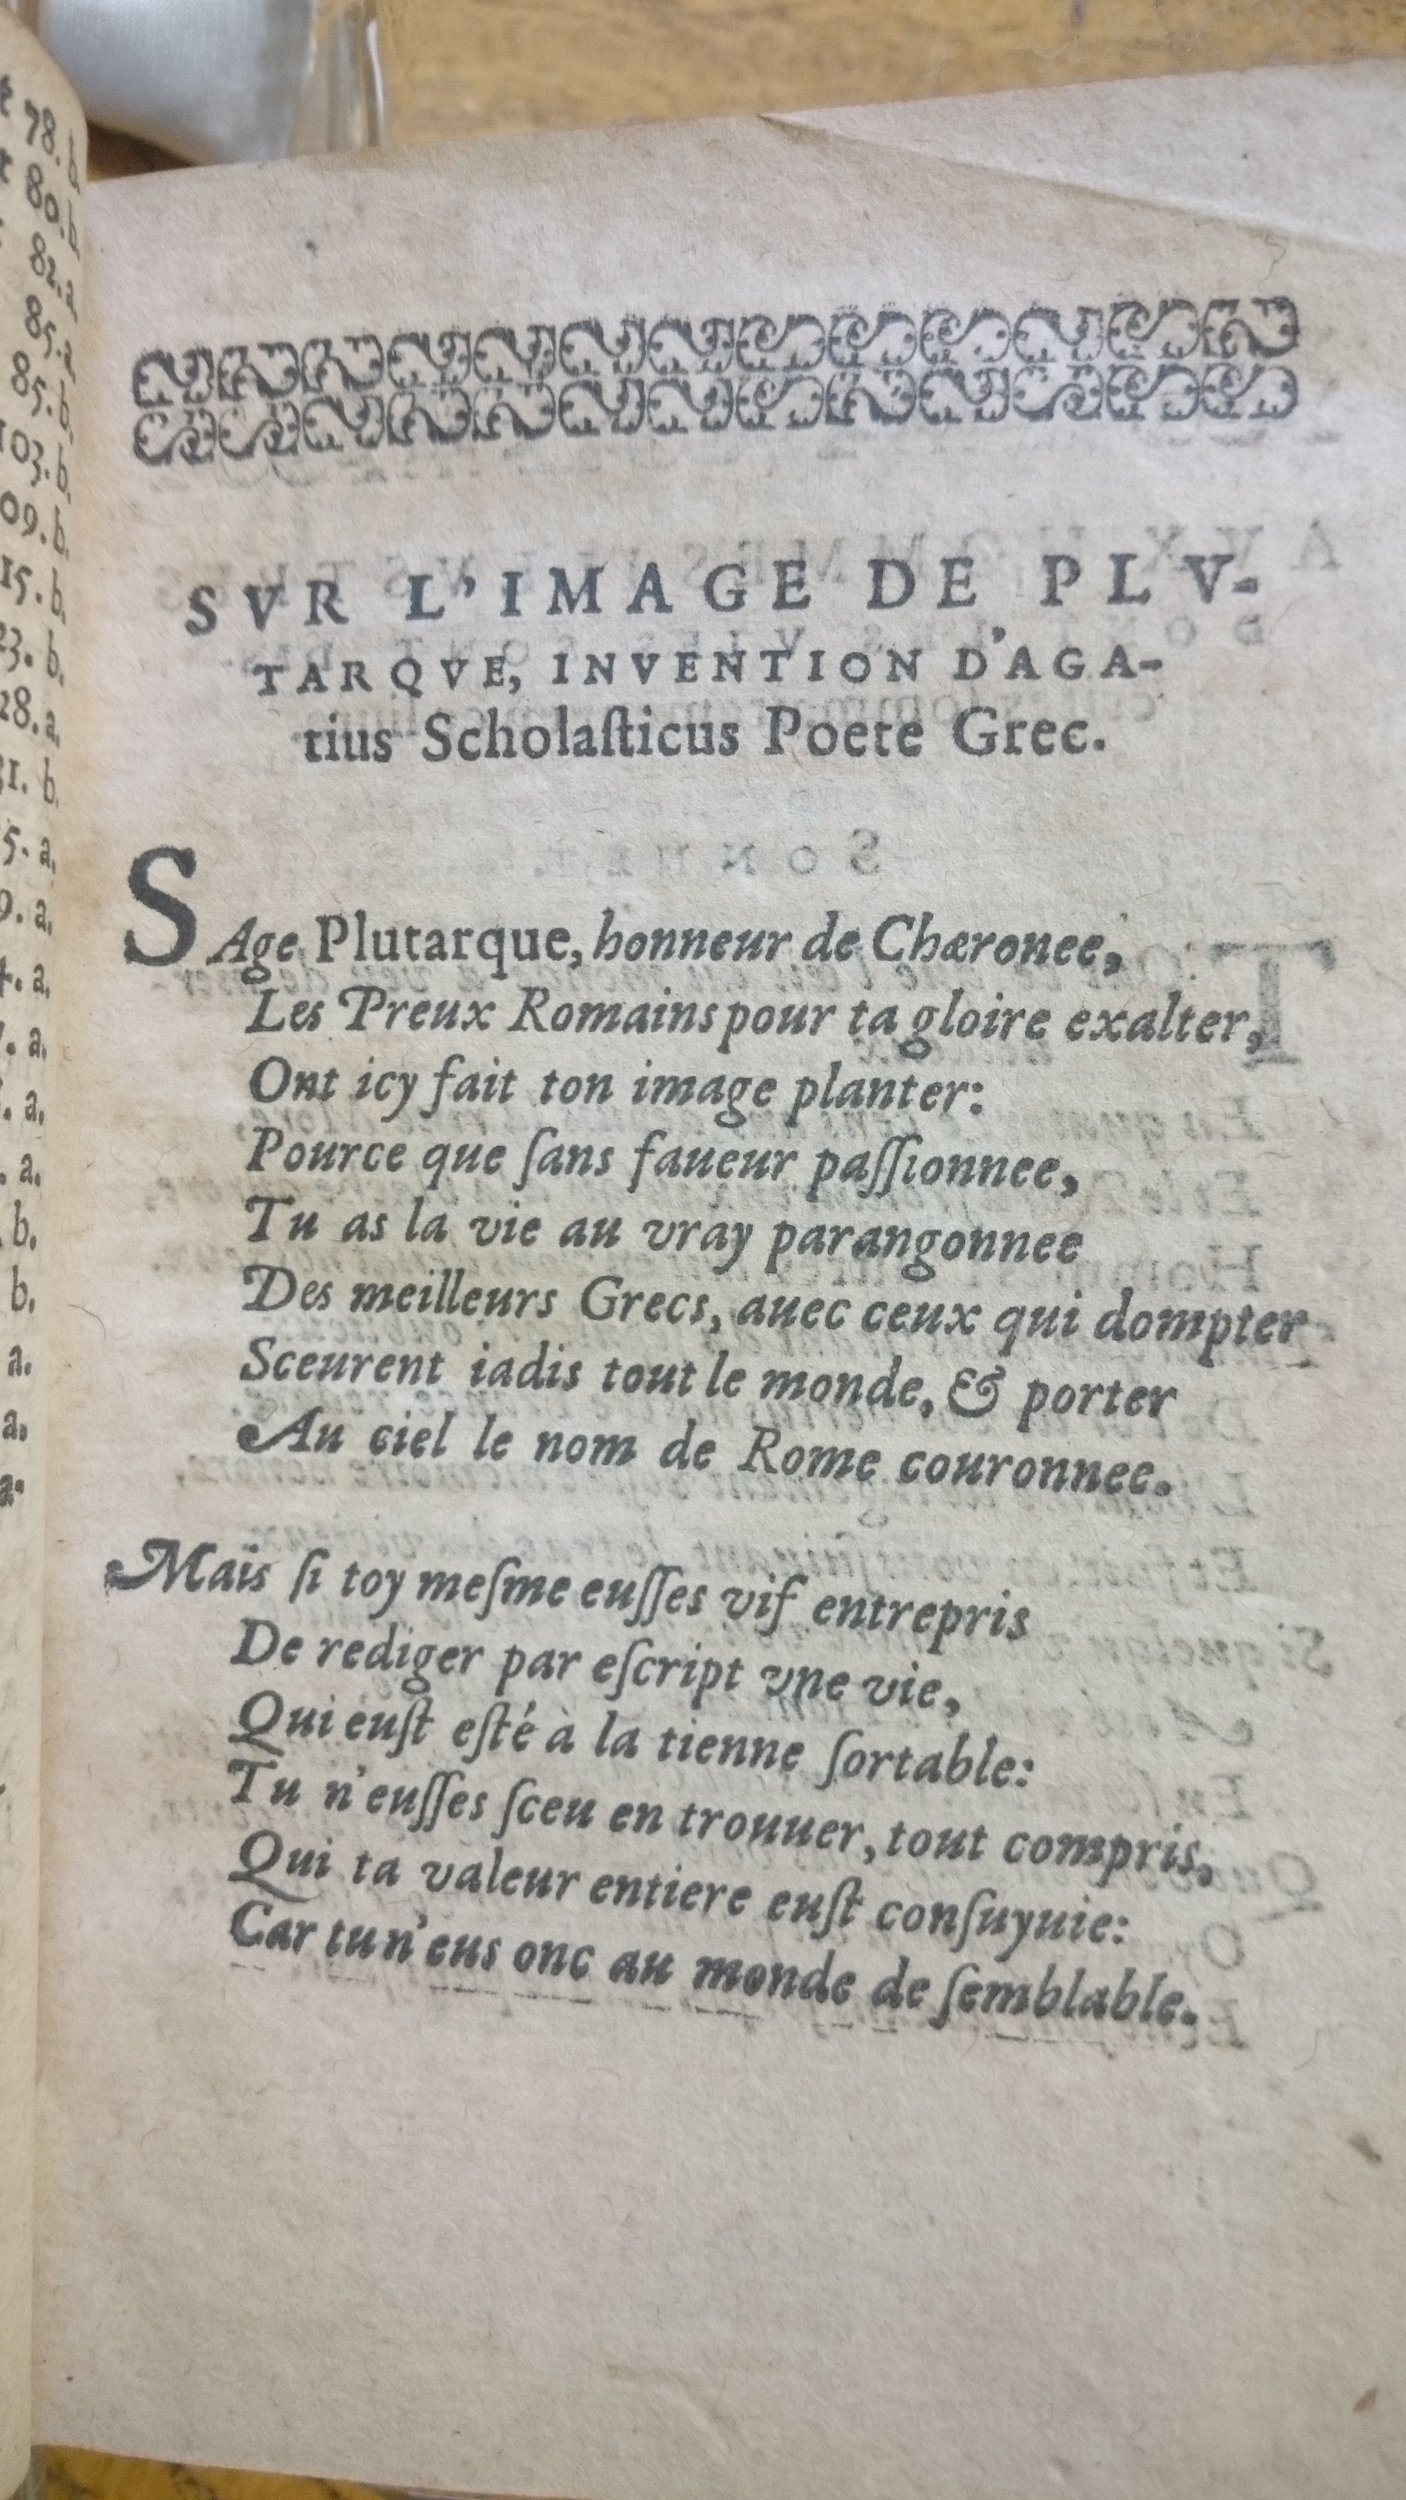 78. b
80. b.
82. a
85. a
85. b.
103. b.
09. b.
15. b.
23. b.
28. a.
31. b.
5. a.
9. a.
4. a.
7. a.
. a.
. a.
b.
b.
a.
a.
a.
SVR L'IMAGE DE PLV-
TARQVE, INVENTION D'AGA-
tius Scholaſticus Poete Grec.
SAge Plutarque, honneur de Chæronee,
Les Preux Romains pour ta gloire exalter,
Ont icy fait ton image planter:
Pource que ſans faueur paſſionnee,
Tu as la vie au vray parangonnee
Des meilleurs Grecs, auec ceux qui dompter
Sceurent iadis tout le monde, & porter
Au ciel le nom de Rome couronnee.
Mais ſi toy meſme euſſes vif entrepris
De rediger par eſcript vne vie,
Qui euſt eſté à la tienne ſortable:
Tu n'euſſes ſceu en trouuer, tout compris,
Qui ta valeur entiere euſt conſuyuie:
Car tu n'eus onc au monde de ſemblable.